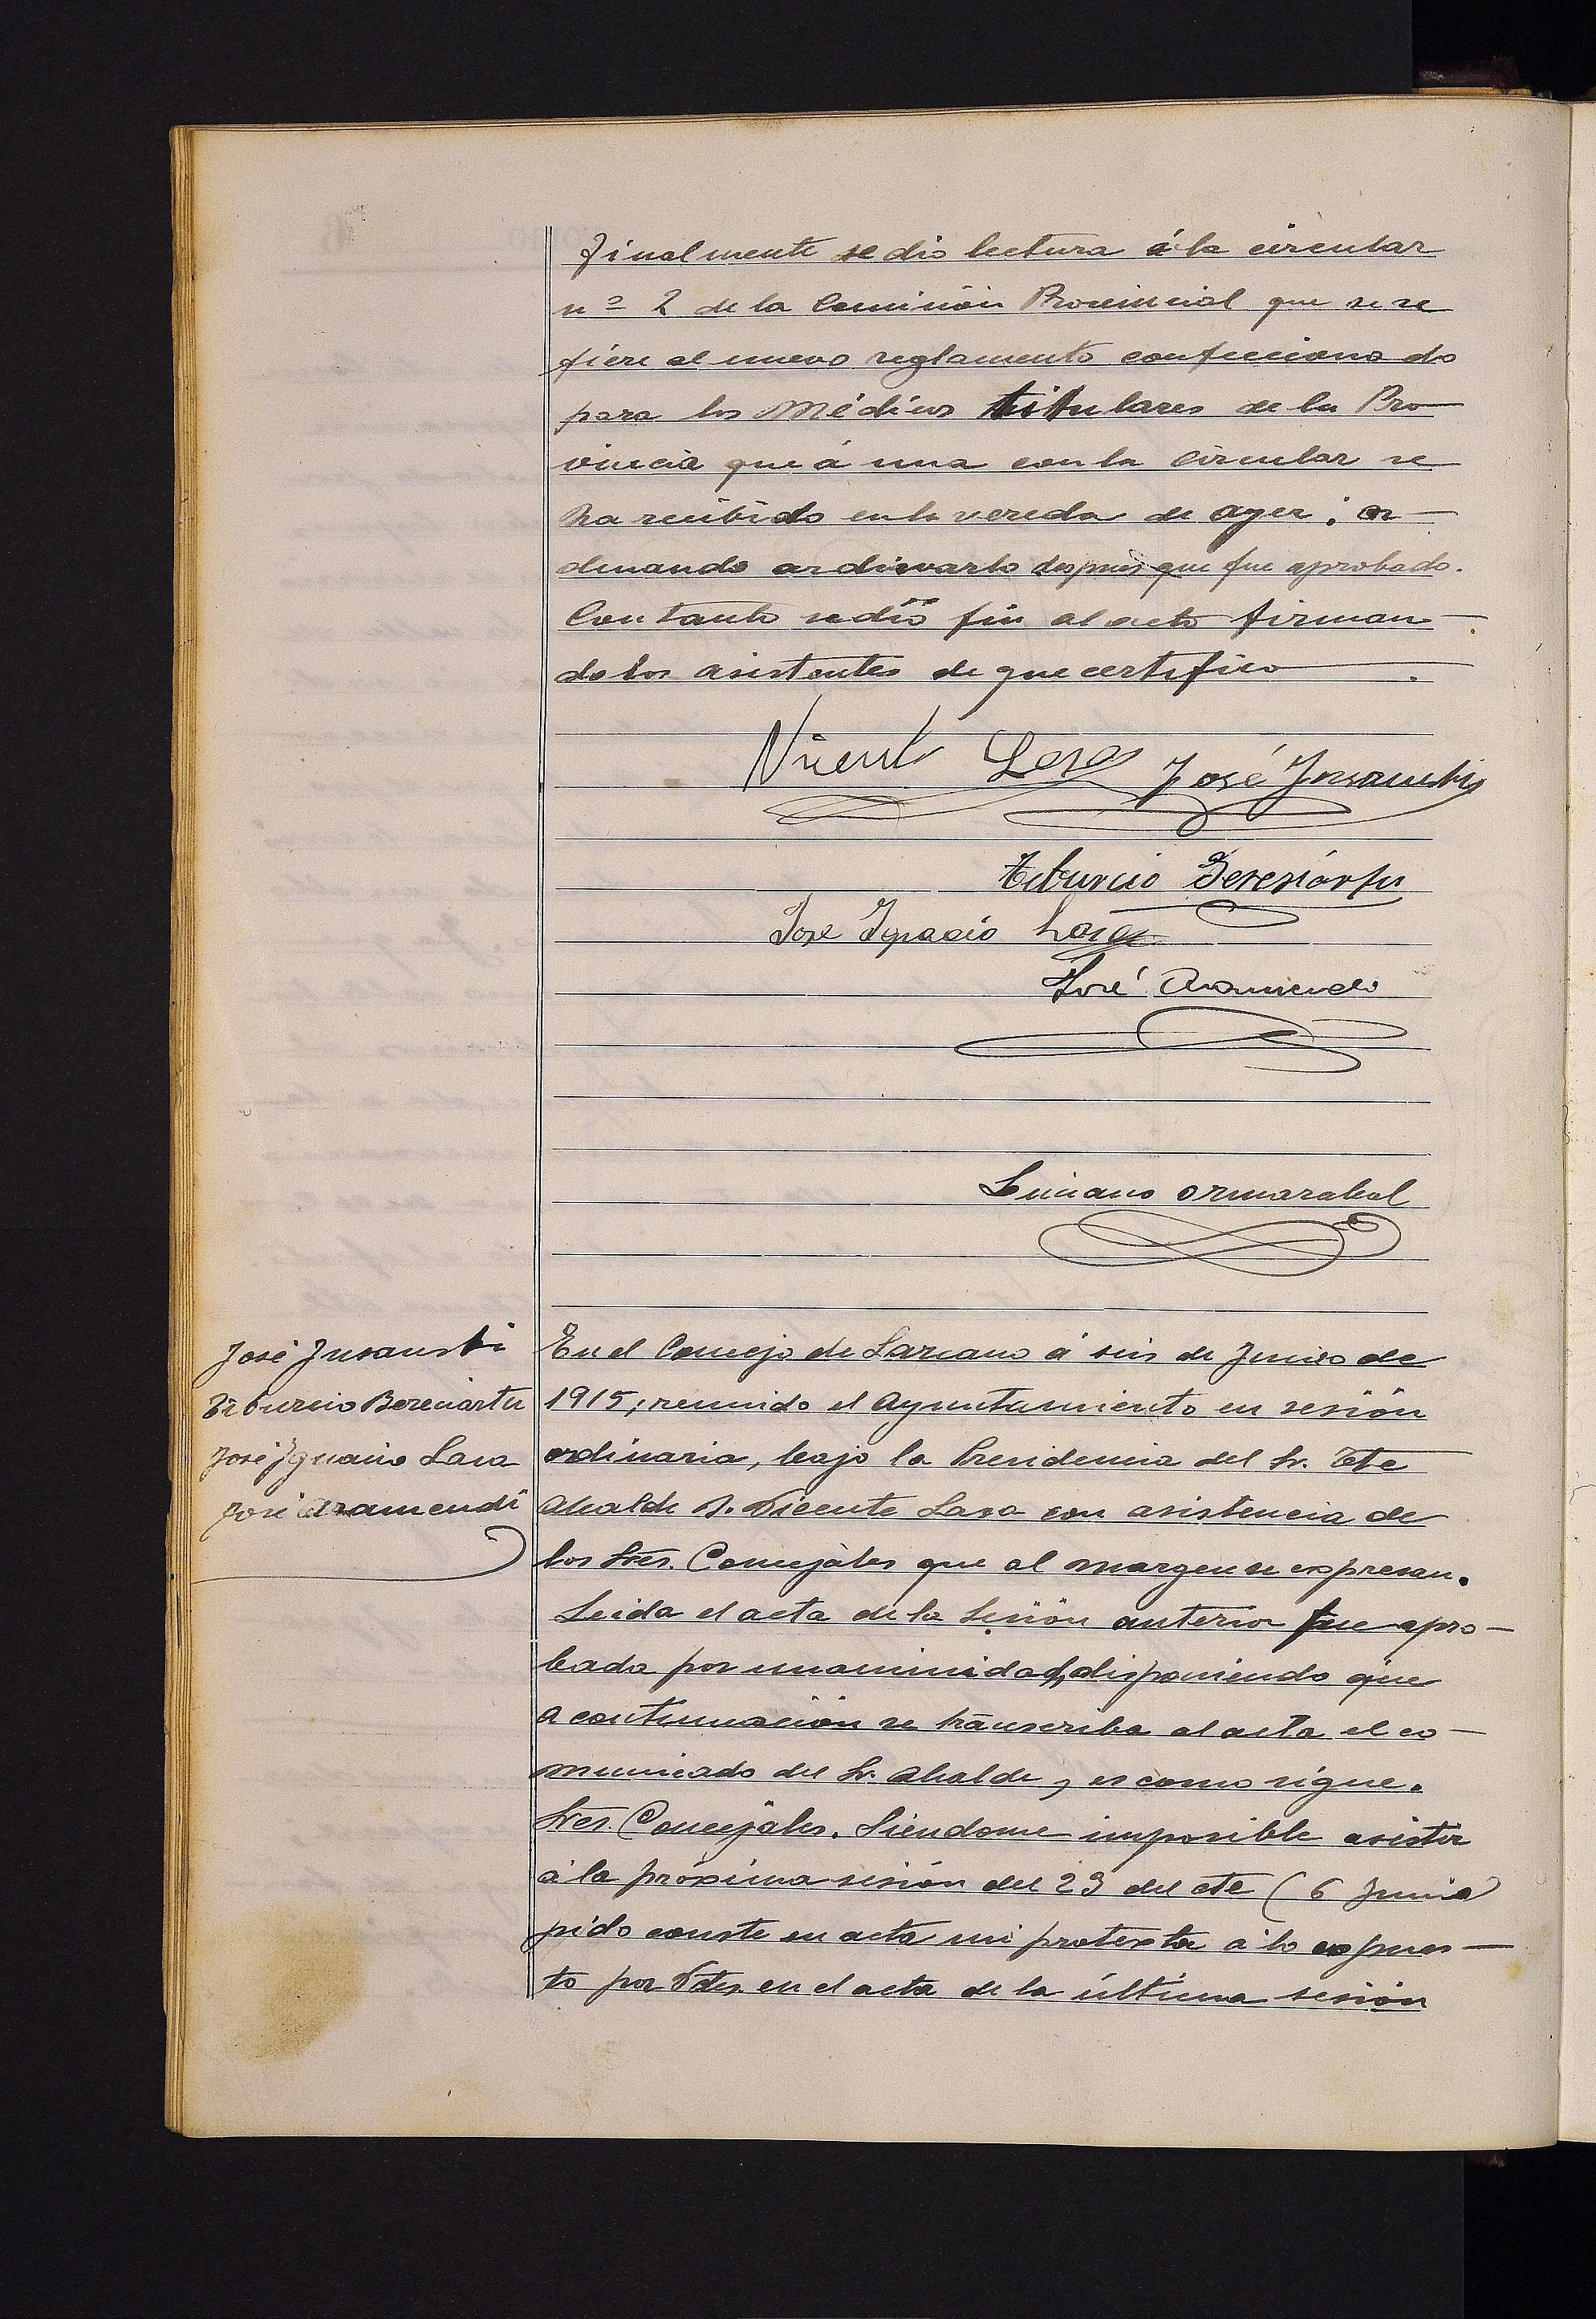 Finalmente se dió lectura á la circular
nº 2 de la Comisión Provincial que se re
fiere al nuevo reglamento confecciona do
para los Médicos titulares de la Pro
vincia que á una con la circular se
ha recibido en la vereda de ayer; or-
denando archivarlo después que fue aprobado.
Con tanto se dió fin al acto firman-
do los asistentes de que certifico
Vicente Lasa José Insausti
Tiburcio Bereciartu
José Ignacio Lasa
José Aramendi
Luciano Ormazabal
José Insausti
Tiburcio Bereciartu
José Ignacio Lasa
José Aramendi
En el Concejo de Lazcano á seis de Junio de
1915; reunido el Ayuntamiento en sesión
ordinaria, bajo la Presidencia del Sr. Tte
Alcalde D. Vicente Lasa con asistencia de
los Sres. Concejales que al margen se expresan.
Leida el acta de la Sesión anterior fue apro-
bada por unanimidad, disponiendo que
a continuación se transcriba al acta el co-
municado del Sr. Alcalde, es como sigue.
Sres. Concejales. Siendome imposible asistir
á la próxima sesión del 23 del cte (6 Junio)
pido conste en acta mi protesta á lo expues-
to por Vdes. en el acta de la última sesión